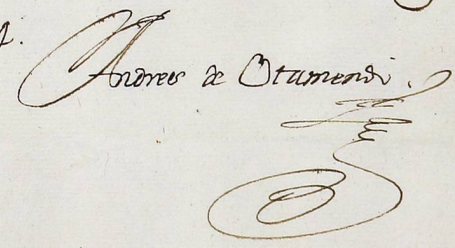 Andres de Otamendi.